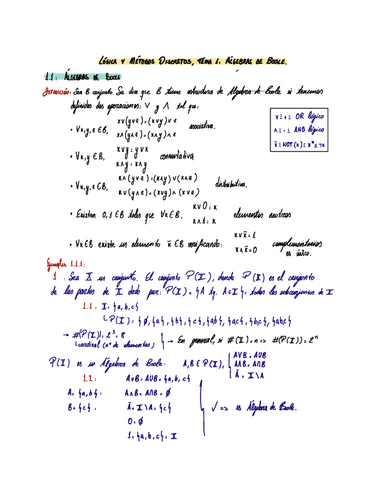 LÓGICA Y MÉTODOS DISCRETOS, TEMA 1. ÁLGEBRAS DE BOOLE.
1.1: ÁLGEBRAS DE BOOLE
DEFINICIÓN: Sea B conjunto. Se dice que B tiene estructura de Álgebra de Boole si tenemos
definidas dos operaciones: ∨ y ∧ tal que:
∨ ≡ + ≡ OR lógico
∧ ≡ · ≡ AND lógico
x̄ ≡ NOT(x) ≡ x* ≡ ¬x
• ∀x,y,z ∈ B, x∨(y∨z) = (x∨y)∨z
x∧(y∧z) = (x∧y)∧z asociativa.
• ∀x,y ∈ B, x∨y = y∨x
x∧y = y∧x conmutativa
• ∀x,y,z ∈ B, x∧(y∨z) = (x∧y)∨(x∧z)
x∨(y∧z) = (x∨y)∧(x∨z) distributiva.
• Existen 0,1 ∈ B tales que ∀x ∈ B, x∨0 = x
x∧1 = x elementos neutros
• ∀x ∈ B existe un elemento x̄ ∈ B verificando: x∨x̄ = 1
x∧x̄ = 0 complementarios
es único.
Ejemplos 1.1.1:
1. Sea X un conjunto. El conjunto P(X), donde P(X) es el conjunto
de las partes de X dado por: P(X) = {A tq. A ⊆ X} = todos los subconjuntos de X
1.1: X = {a,b,c}
↳ P(X) = {∅, {a}, {b}, {c}, {a,b}, {a,c}, {b,c}, {a,b,c}}
→ #(P(X)) = 2³ = 8
↳ cardinal (nº de elementos)
→ En general, si #(X) = n => #(P(X)) = 2ⁿ
P(X) es un Álgebra de Boole: A,B ∈ P(X),
A∨B = A∪B
A∧B = A∩B
Ā = X\A
1.2: A∨B = A∪B = {a,b,c}
A = {a,b} A∧B = A∩B = ∅
B = {c} Ā = X\A = {c}
0 = ∅
1 = {a,b,c} = X
√ => es Álgebra de Boole.